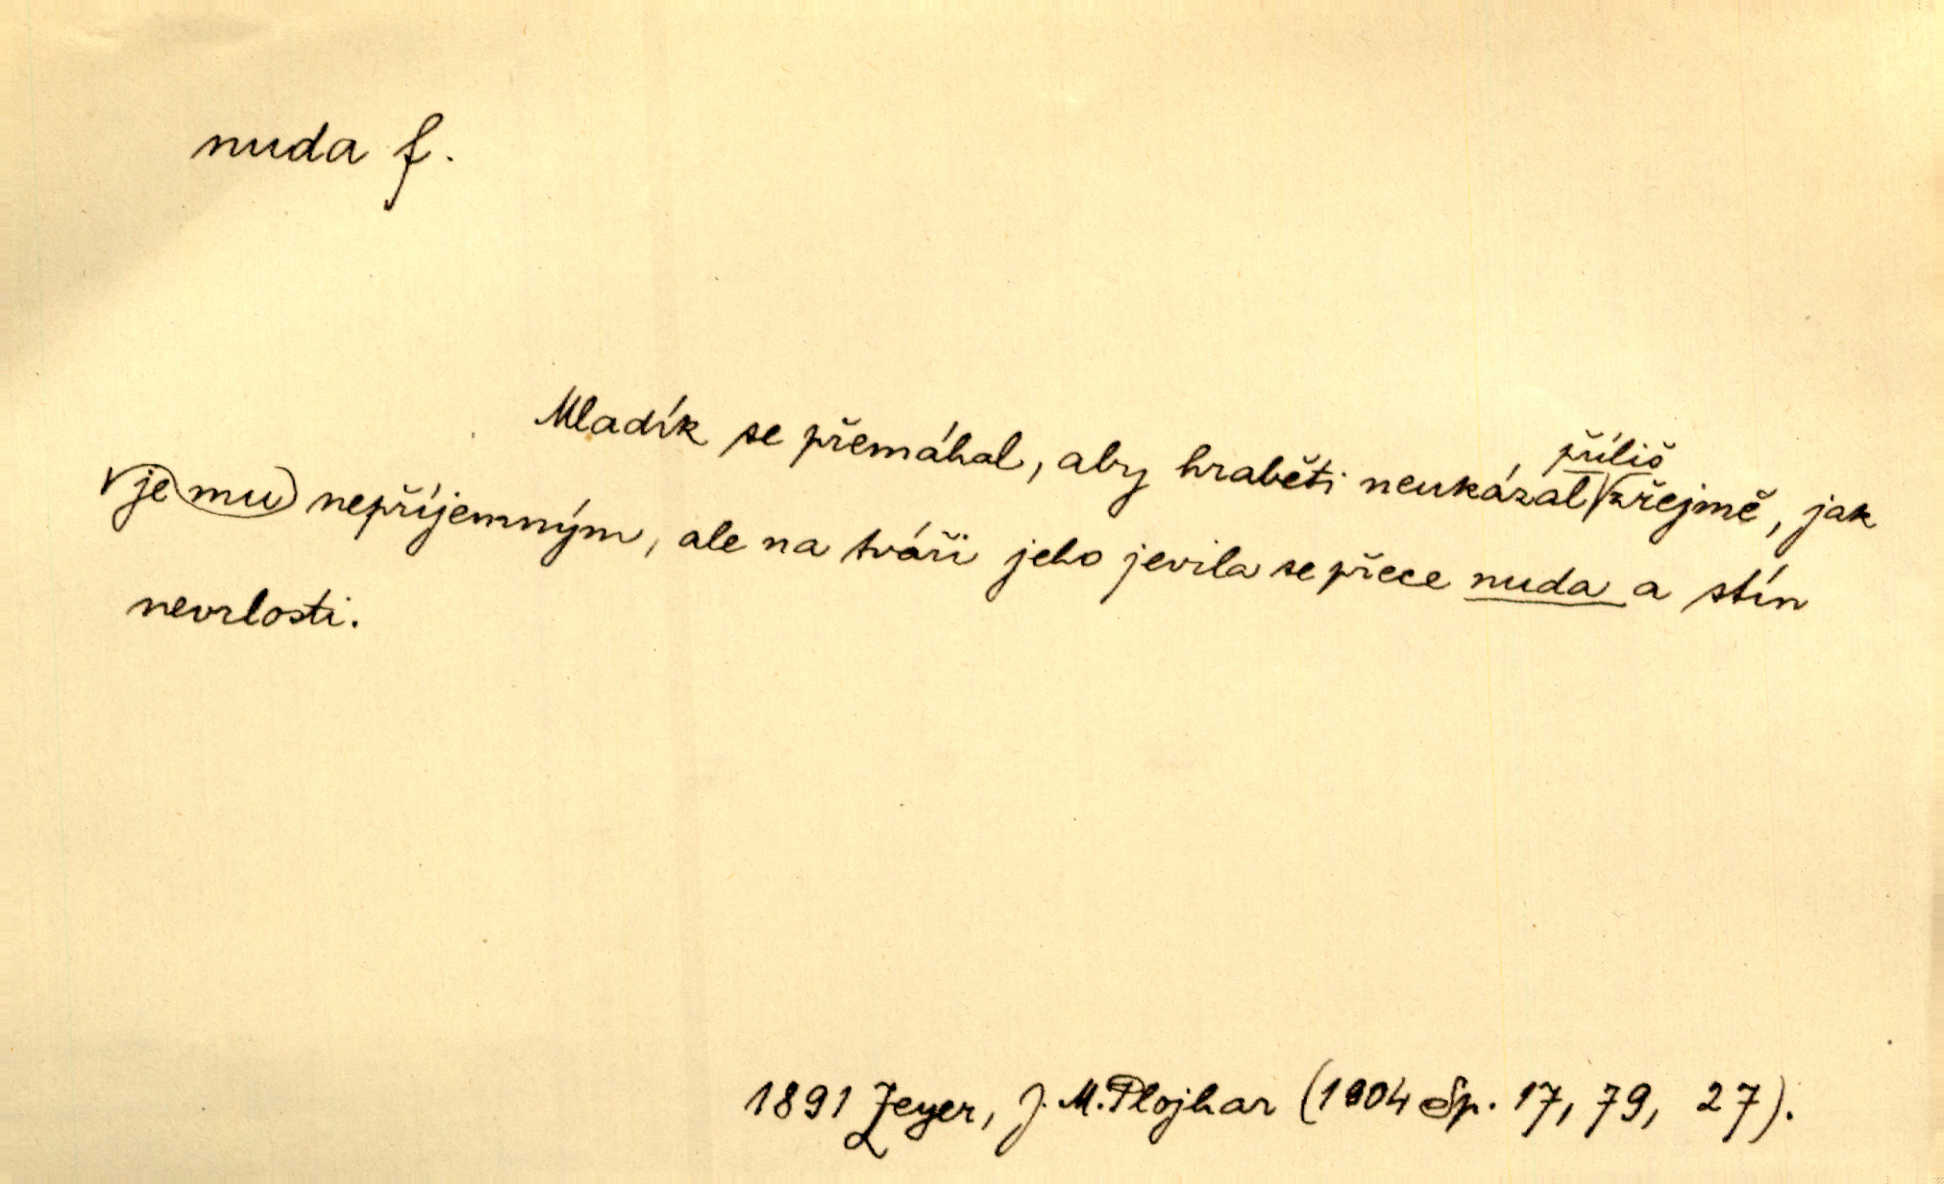 nuda f.
Mladík se přemáhal, aby hraběti neukázal příliš zřejmě, jak
je mu nepříjemným, ale na tváři jeho jevila se přece nuda a stín
nevrlosti.
1891 Zeyer, J. M. Plojhar (1904 Sp. 17, 79, 27).